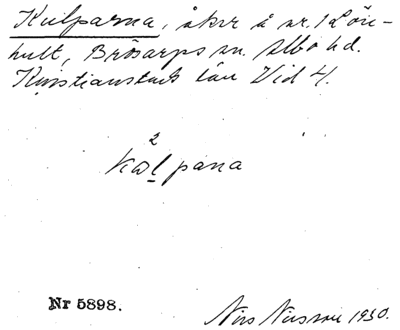 Kulparna, åkrar å nr. 1 Lön-
hult, Brösarps sn. Albo hd.
Kristianstads län Vid 4.
2
kolpana
Nr 5898.
Nils Nilsson 1930.